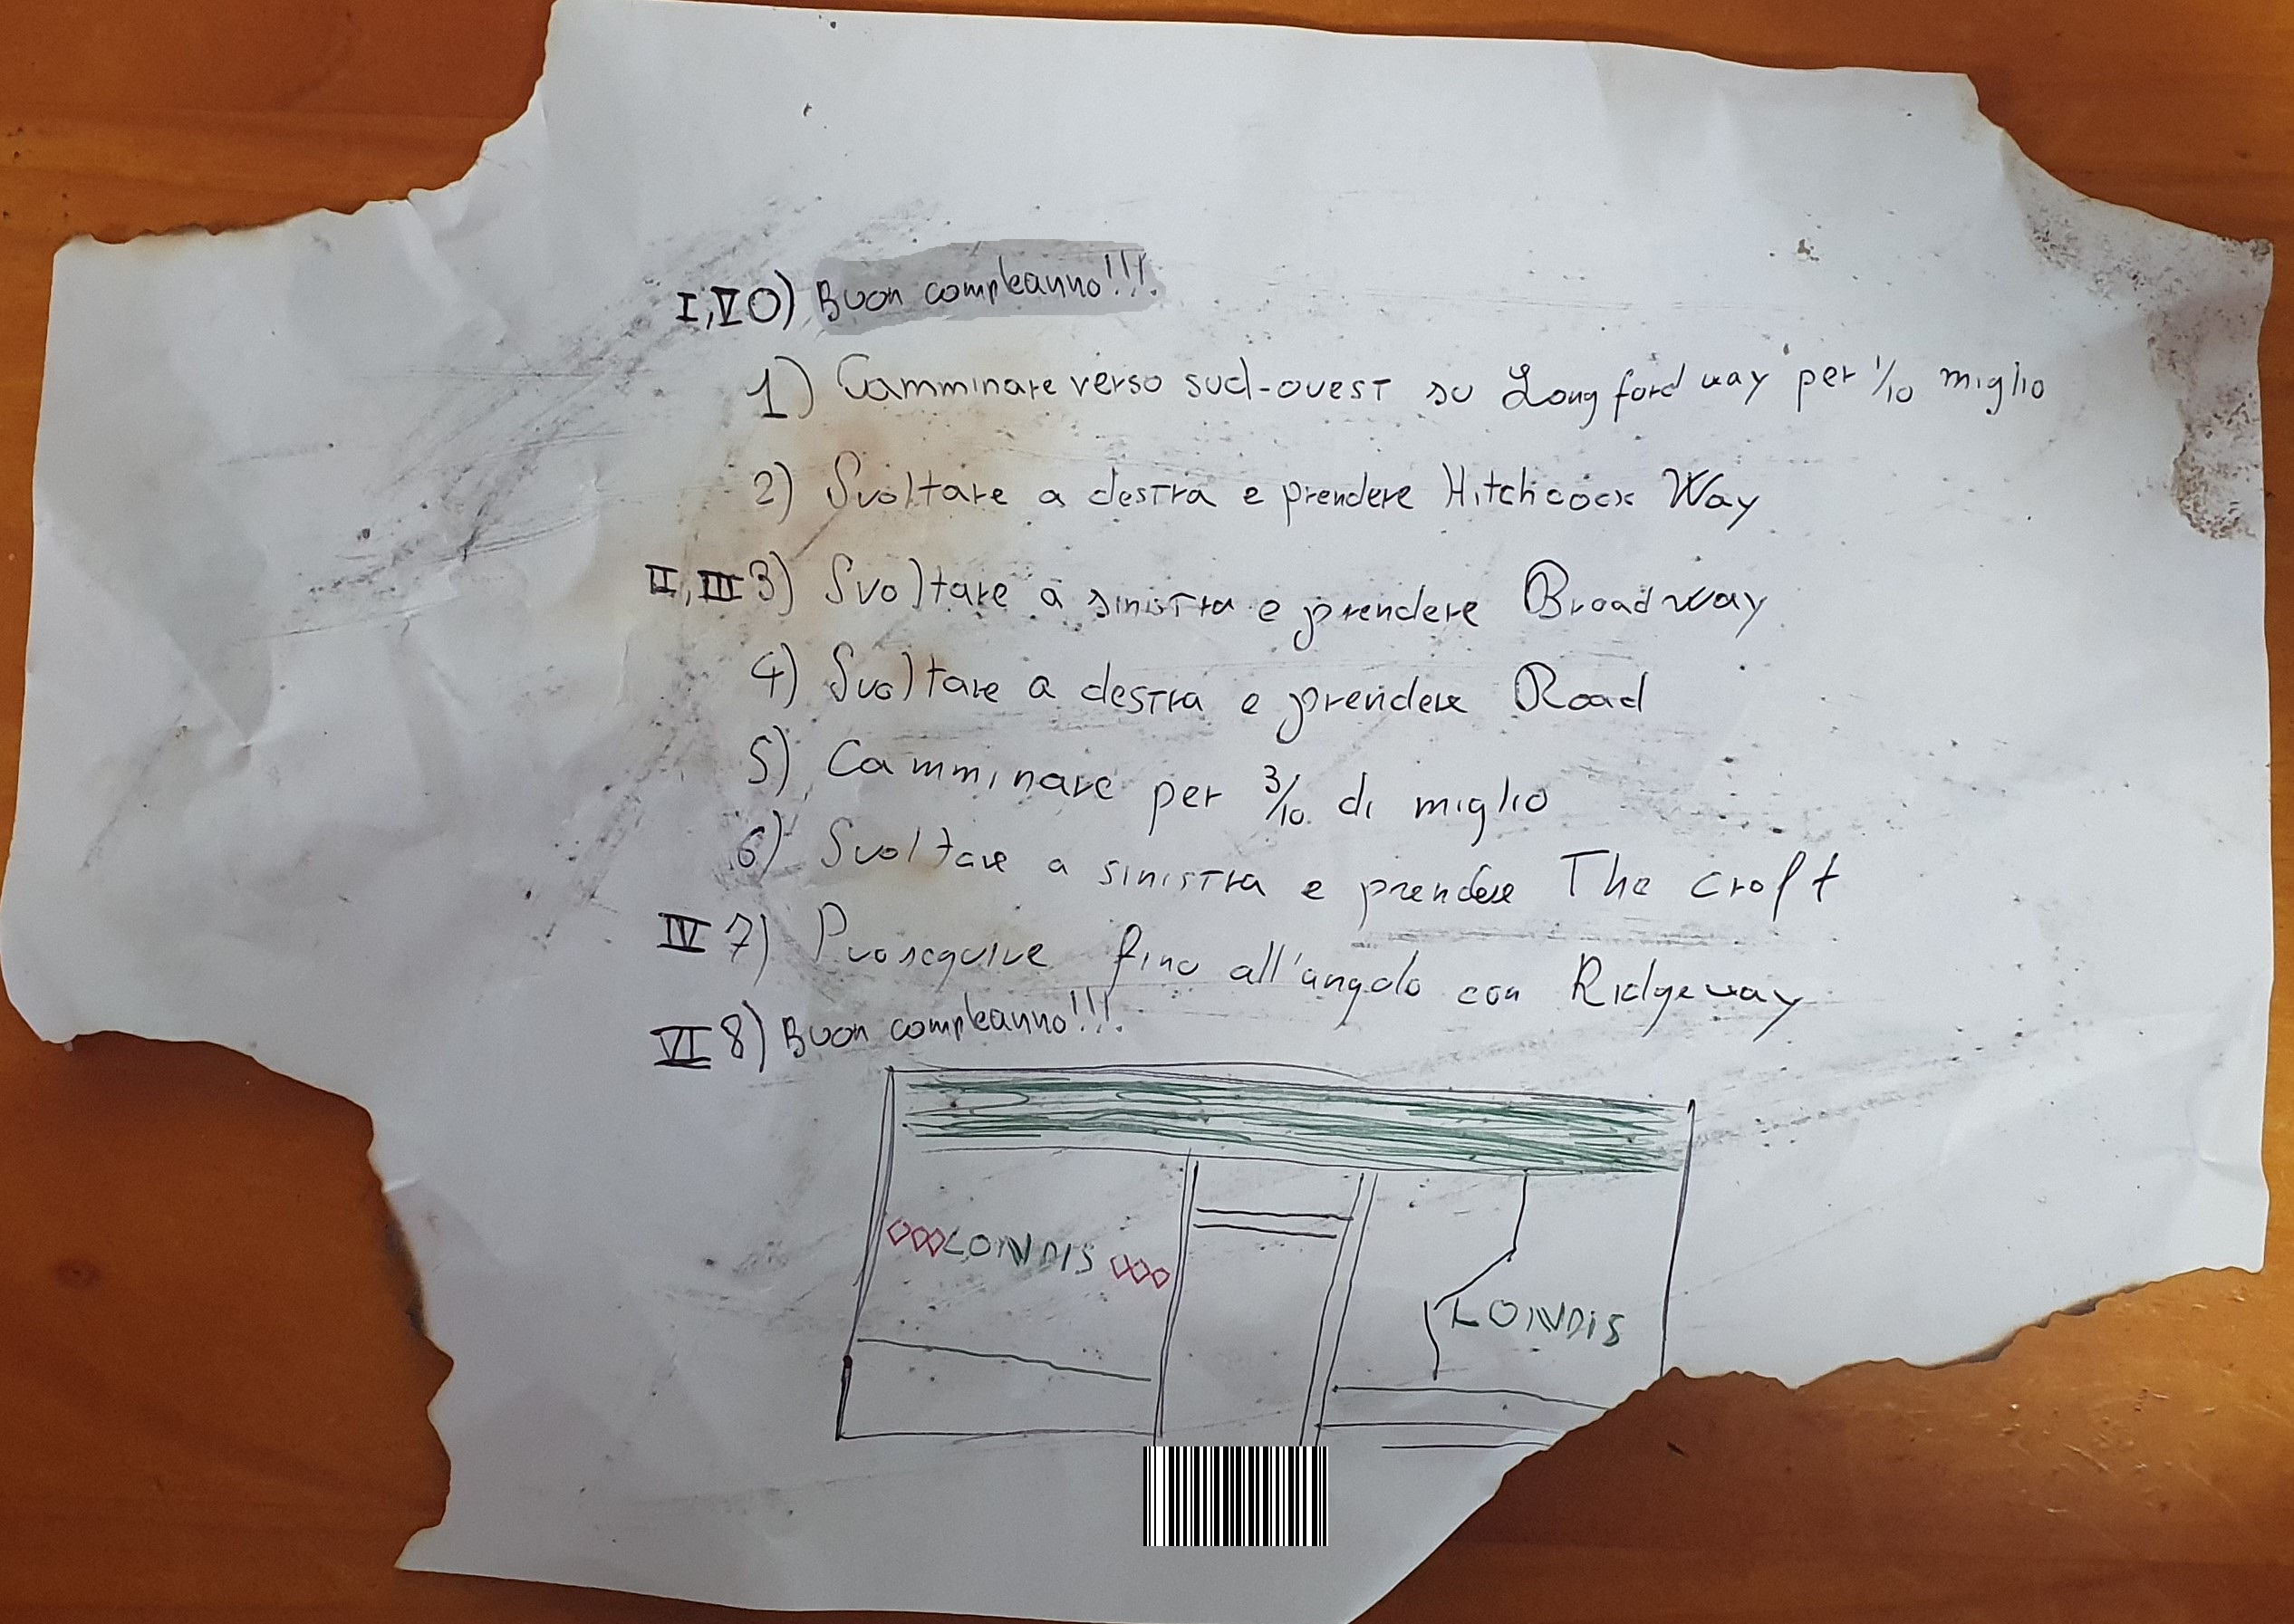 I,V 0) Buon compleanno!!!
1) Camminare verso sud-ovest su Longford way per 1/10 miglio
2) Svoltare a destra e prendere Hitchcock Way
II, III 3) Svoltare a sinistra e prendere Broadway
4) Svoltare a destra e prendere Road
5) Camminare per 3/10 di miglio
6) Svoltare a sinistra e prendere The croft
IV 7) Proseguire fino all'angolo con Ridgeway
VI 8) Buon compleanno!!!
LONDIS
LONDIS